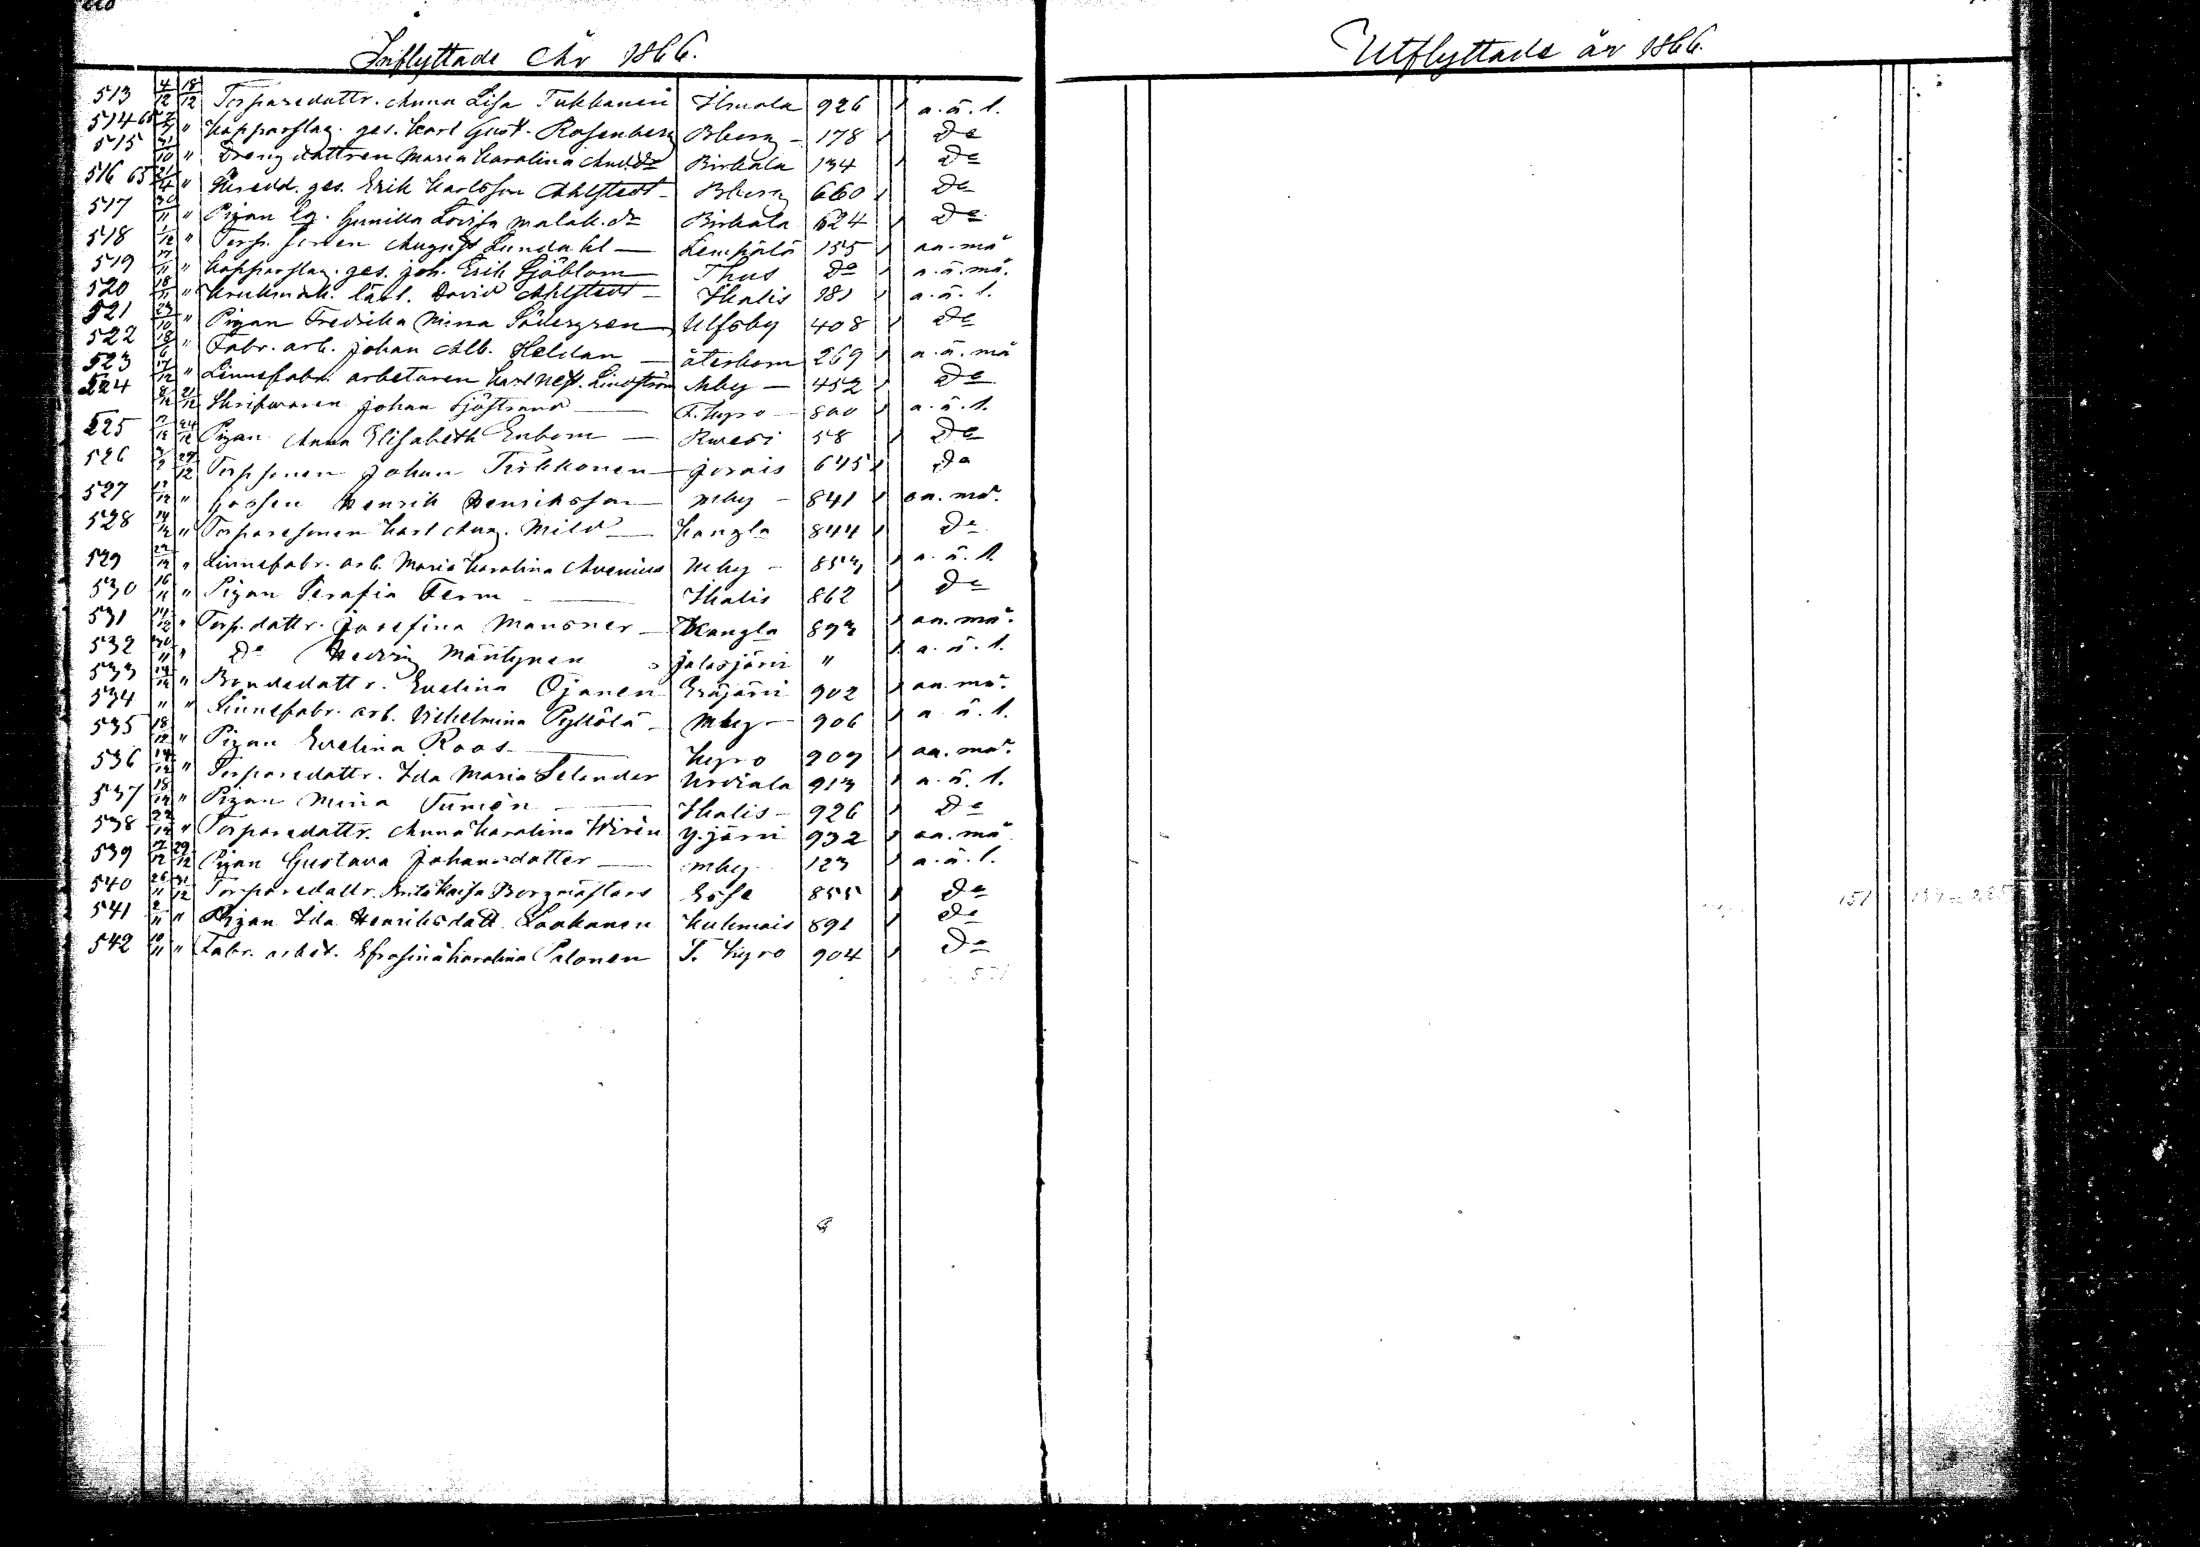 Inflyttade År 1866.
513 4/12 18/12 Torparedattr. Anna Lisa Tukkanen Ilmola 926 a. ä. l.
514 65 " Kopparslag. ges. Karl Gust. Rosenberg Bberg - 178 Do
515 " Drengdattren Maria Karolina And.dr Birkala 134 Do
516 65 " Skredd. ges. Erik Karlsson Ahlstedt - Bberg 660 Do
517 30/11 " Pigan Eg. Gunilla Lovisa Malak. dr Birkala 624 Do
518 1/12 " Torp. sonen August Lundahl — Lempälä 155 an. må
519 " Kopparslag. ges. Joh. Erik Sjöblom — Thus Do a. ä. må.
520 18/11 " Krukmak. lärl. David Ahlstedt - Ikalis 181 a. ä. l.
521 23/10 " Pigan Fredrika Mina Södergren Ulfsby 408 Do
522 18/6 " Fabr. arb. Johan Alb. Heldan — återkom 269 a. ä. må
523 17/12 " Linnefabr. arbetaren Karl Nest. Lindström Mby — 452 Do
524 21/12 Skrifvaren Johan Sjöstrand — T. Kyro - 800 a. ä. l.
525 24/12 Pigan Anna Elisabeth Enbom — Kwesi 58 Do
526 29/12 Torpsonen Johan Tirkkonen - Jorais 645 Do
527 " Gossen Henrik Henriksson — Mby - 841 an. må.
528 14/12 " Torparesonen Karl Aug. Mild — Kangla 844 Do
529 22/12 " Linnefabr. arb. Maria Karolina Avenius Mby - 853 a. ä. l.
530 16/11 " Pigan Serafia Ferm — Ikalis 862 Do
531 14/12 " Torp. dattr. Josefina Mansner - Kangla 893 an. må.
532 30/11 " Do Hedvig Mäntynen Jalasjärvi " a. ä. l.
533 " Bondedattr. Evelina Ojanen Eräjärvi 902 an. må.
534 " " Linnefabr. arb. Vilhelmina Pyllölä - Mby - 906 a. ä. l.
535 18/12 " Pigan Evelina Roos — Kyro 909 an. må.
536 14/12 " Torparedattr. Ida Maria Selander Urdiala 913 a. ä. l.
537 18/12 " Pigan Mina Tumén — Ikalis - 926 Do
538 22/12 " Torparedattr. Anna Karolina Wirén Y. järvi 932 an. må
539 29/12 Pigan Gustava Johansdotter — Mby 123 a. ä. l.
540 26/11 31/12 Torparedattr. Anita Kaisa Bergmästars 855 Do
541 2/11 " Pigan Ida Henriksdatt. Laakanen Kuhmais 891 Do
542 10/11 " Fabr. arbet. Efrosina Karolina Palonen T. Kyro 904 Do
Utflyttade år 1866.
151